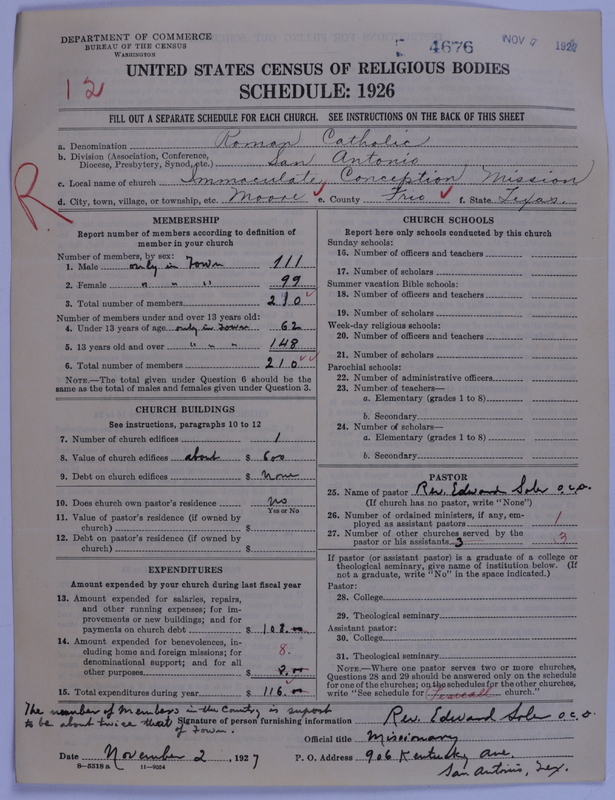 DEPARTMENT OF COMMERCE
BUREAU OF THE CENSUS
WASHINGTON
4676
NOV 7 192
12
UNITED STATES CENSUS OF RELIGIOUS BODIES
SCHEDULE: 1926
FILL OUT A SEPARATE SCHEDULE FOR EACH CHURCH. SEE INSTRUCTIONS ON THE BACK OF THIS SHEET
R.
a. Denomination Roman Catholic
b. Division (Association, Conference, Diocese, Presbytery, Synod, etc.) San Antonio
c. Local name of church Immaculate Conception Mission
d. City, town, village, or township, etc. Moore e. County Frio f. State Texas.
MEMBERSHIP
Report number of members according to definition of member in your church
Number of members, by sex:
1. Male only in Town 111
2. Female " " " 99
3. Total number of members 210
Number of members under and over 13 years old:
4. Under 13 years of age only in Town 62
5. 13 years old and over " " " 148
6. Total number of members 210
NOTE.—The total given under Question 6 should be the same as the total of males and females given under Question 3.
CHURCH BUILDINGS
See instructions, paragraphs 10 to 12
7. Number of church edifices 1
8. Value of church edifices about $ 600
9. Debt on church edifices $ None
10. Does church own pastor's residence No
Yes or No
11. Value of pastor's residence (if owned by church) $
12. Debt on pastor's residence (if owned by church) $
EXPENDITURES
Amount expended by your church during last fiscal year
13. Amount expended for salaries, repairs, and other running expenses; for improvements or new buildings; and for payments on church debt $ 108.00
14. Amount expended for benevolences, including home and foreign missions; for denominational support; and for all other purposes 8. $ 8.00
15. Total expenditures during year $ 116.00
CHURCH SCHOOLS
Report here only schools conducted by this church
Sunday schools:
16. Number of officers and teachers
17. Number of scholars
Summer vacation Bible schools:
18. Number of officers and teachers
19. Number of scholars
Week-day religious schools:
20. Number of officers and teachers
21. Number of scholars
Parochial schools:
22. Number of administrative officers
23. Number of teachers—
a. Elementary (grades 1 to 8)
b. Secondary
24. Number of scholars—
a. Elementary (grades 1 to 8)
b. Secondary
PASTOR
25. Name of pastor Rev. Edward Soler O.C.D.
(If church has no pastor, write "None")
26. Number of ordained ministers, if any, employed as assistant pastors 1
27. Number of other churches served by the pastor or his assistants 3 3
If pastor (or assistant pastor) is a graduate of a college or theological seminary, give name of institution below. (If not a graduate, write "No" in the space indicated.)
Pastor:
28. College
29. Theological seminary
Assistant pastor:
30. College
31. Theological seminary
NOTE.—Where one pastor serves two or more churches, Questions 28 and 29 should be answered only on the schedule for one of the churches; on the schedules for the other churches, write "See schedule for church."
The number of Members in the Country is supost
to be about twice that
of Town.
Signature of person furnishing information Rev. Edward Soler O.C.D.
Official title Missionary
Date November 2, 1927 P. O. Address 906 Kentucky Ave.
San Antonio, Tex.
8—5518 a 11—9024